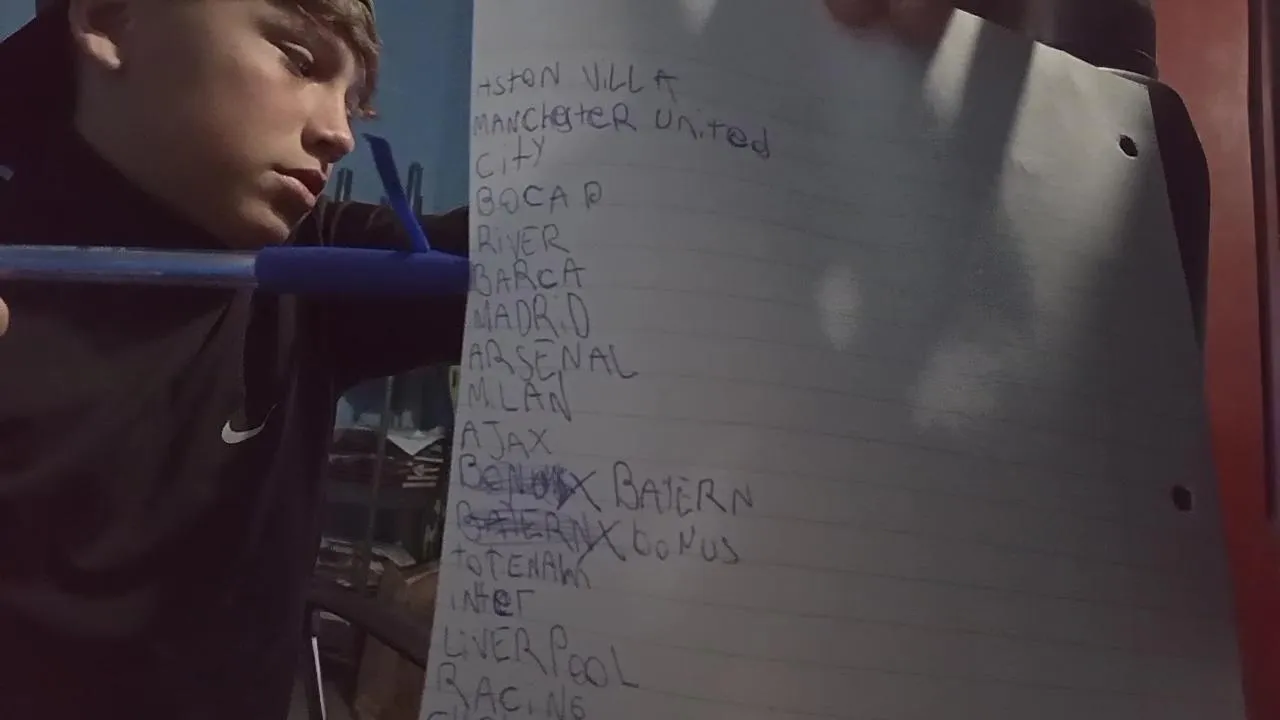 ASTON VILLA
MANCHesteR United
CiTY
BOCA
RiVER
BARCA
MADRiD
ARSENAL
MiLAN
AJAX
X BAYERN
BAYERN X bONUS
TOTENAM
iNteR
LiVERPOOL
RACiNG